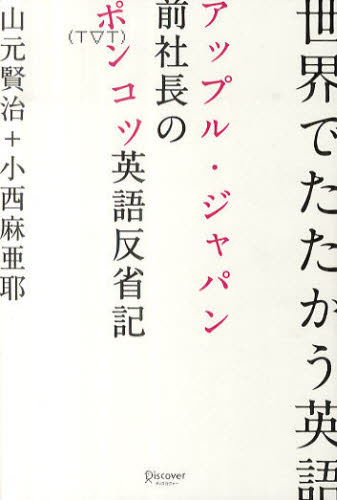 世界でたたかう英語
アップル・ジャパン
前社長の
ポンコツ英語反省記
(T▽T)
山元賢治+小西麻亜耶
Discover
ディスカヴァー